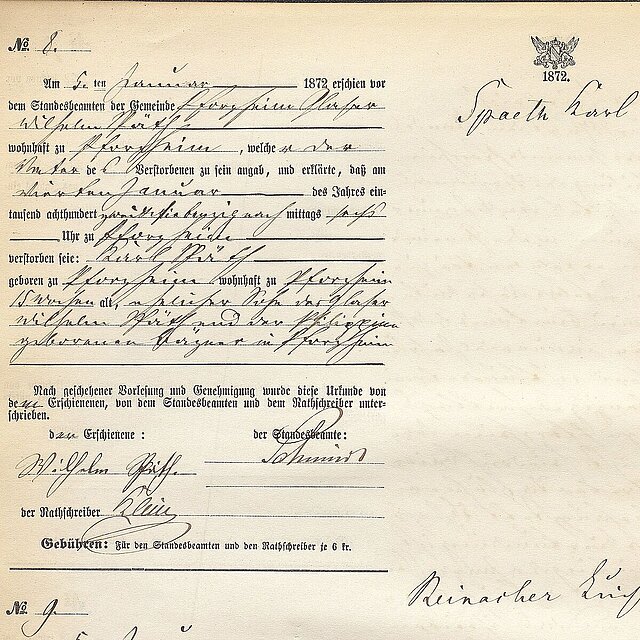 № 8.
1872.
Spaeth Karl
Am 5. ten Januar 1872 erschien vor
dem Standesbeamten der Gemeinde Pforzheim Glaser
Wilhelm Späth
wohnhaft zu Pforzheim, welcher der
Vater des Verstorbenen zu sein angab, und erklärte, daß am
vierten Januar des Jahres ein-
tausend achthundert zweiundsiebenzig nach mittags sechs
Uhr zu Pforzheim
verstorben seie: Karl Späth
geboren zu Pforzheim wohnhaft zu Pforzheim
15 Wochen alt, ehelicher Sohn des Glaser
Wilhelm Späth und der Philippine
geborenen Wagner in Pforzheim
Nach geschehener Vorlesung und Genehmigung wurde diese Urkunde von
dem Erschienenen, von dem Standesbeamten und dem Rathschreiber unter-
schrieben.
der Erschienene: der Standesbeamte:
Wilhelm Späth. Schmidt
der Rathschreiber Klein
Gebühren: Für den Standesbeamten und den Rathschreiber je 6 kr.
Reinacher
№ 9.